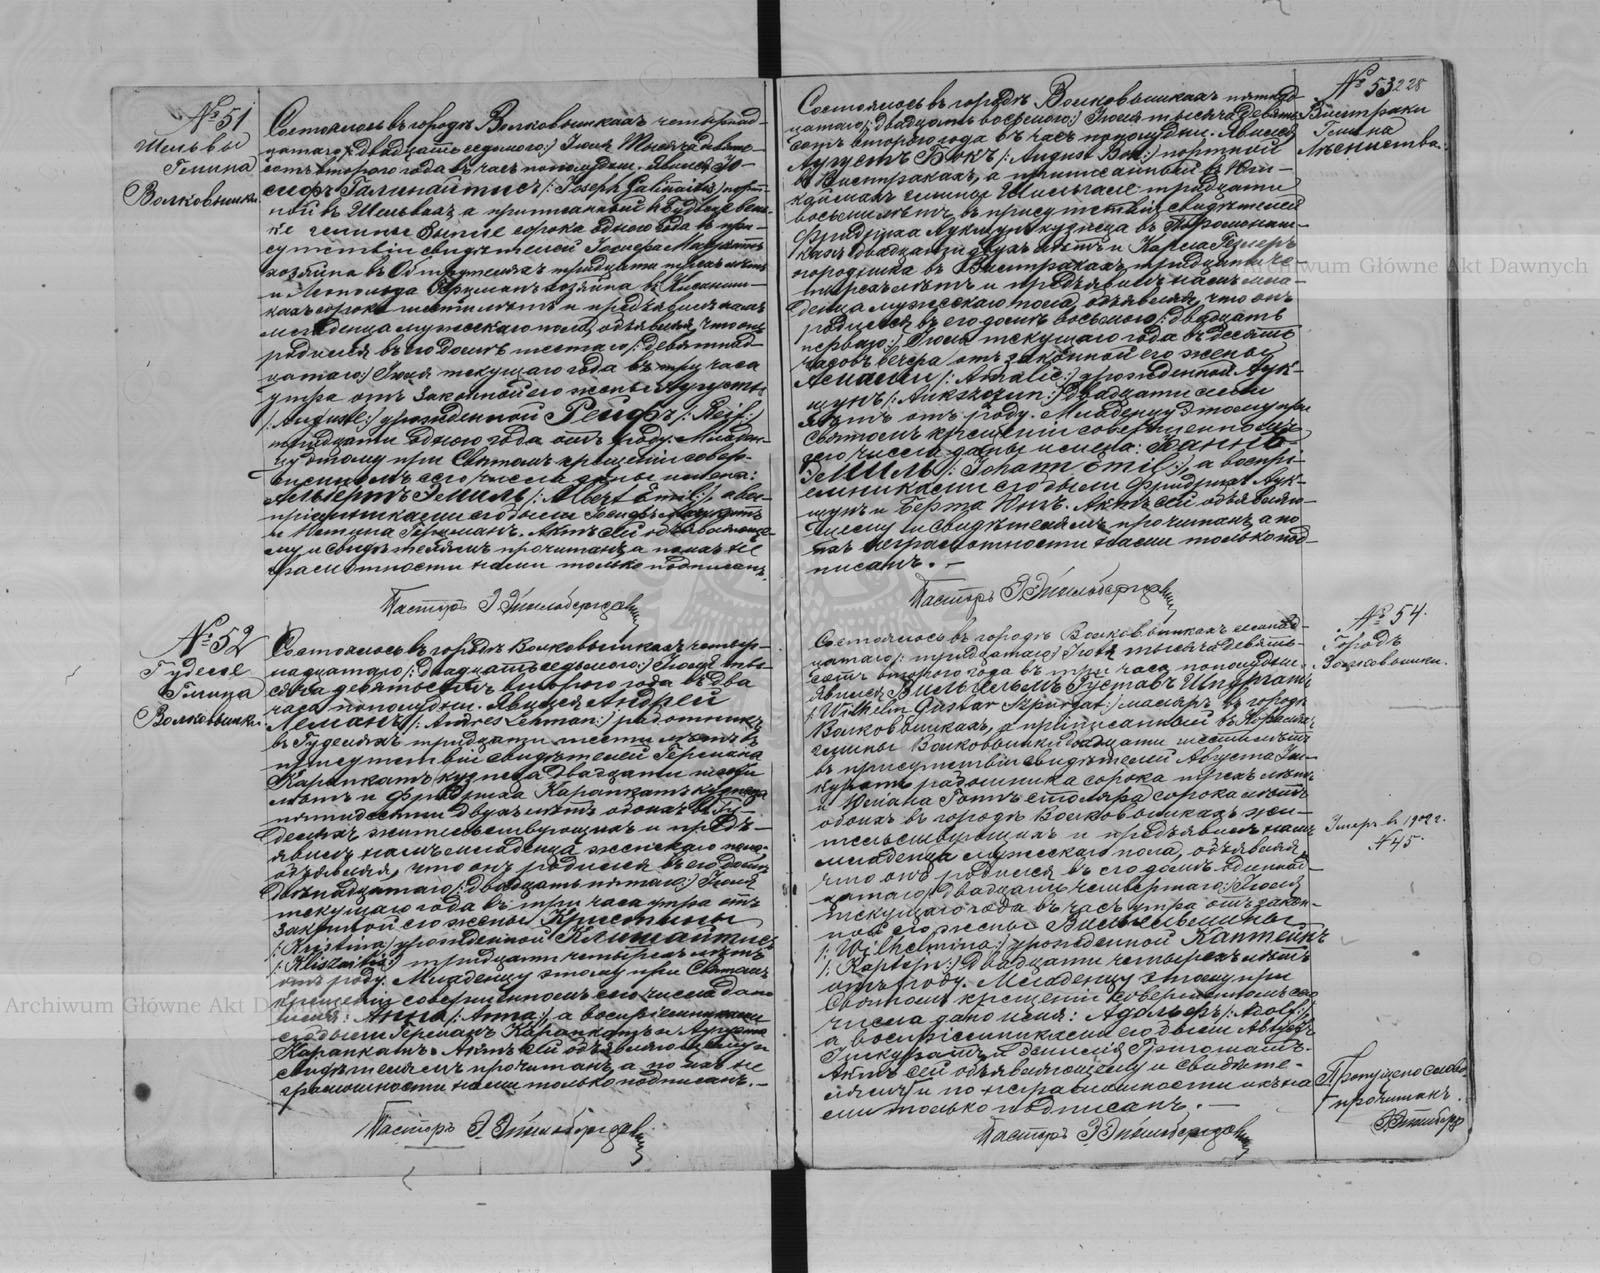 № 51
Шельвы
Гмина
Волковышки
Состоялось въ городѣ Волковышкахъ четырнад-
цатаго /: двадцать седьмого :/ Іюля тысяча девять-
сотъ второго года въ часъ пополудни. Явился Іо-
сифъ Галинайтисъ /: Joseph Galinaitis :/ порт-
ной въ Шельвахъ, а приписанный къ
гмины сорока одного года въ при-
сутствіи свидѣтелей Іосифа
хозяина въ тридцати трехъ лѣтъ
и Леопольда хозяина въ
кахъ сорока шести лѣтъ и предъявилъ намъ
младенца мужескаго пола, объявляя, что онъ
родился въ его домѣ шестаго /: девятнад-
цатаго :/ Іюля текущаго года въ три часа
утра отъ законной его жены Августы
/: Auguste :/ урожденной Рейфъ /: Reif :/
тридцати одного года отъ роду. Младен-
цу этому при Святомъ крещеніи совер-
шенномъ сего числа даны имена:
Альбертъ Эмиль /: Albert Emil :/, а вос-
пріемниками его были Іосифъ
и Актъ сей объявляюще-
му и свидѣтелямъ прочитанъ, а по ихъ не
грамотности нами только подписанъ.
Пасторъ
№ 52
Гуделе
Гмина
Волковышки
Состоялось въ городѣ Волковышкахъ четыр-
надцатаго /: двадцать седьмого :/ Іюля ты-
сяча девятьсотъ второго года въ два
часа пополудни. Явился Андрей
Леманъ /: Andres Lehman :/ работникъ
въ Гуделяхъ тридцати шести лѣтъ въ
присутствіи свидѣтелей Германа
Карапкатъ кузнеца двадцати
лѣтъ и Фридриха Карапкатъ кузнеца
пятидесяти двухъ лѣтъ обоихъ въ Гу-
деляхъ жительствующихъ и предъ-
явилъ намъ младенца женскаго пола,
объявляя, что онъ родился въ его домѣ
двѣнадцатаго /: двадцать пятаго :/ Іюля
текущаго года въ три часа утра отъ
законной его жены Кристины
/: Kristina :/ урожденной Клишайтисъ
/: Kliszaitis :/ тридцати четырехъ лѣтъ
отъ роду. Младенцу этому при Святомъ
крещеніи совершенномъ сего числа дано
имя: Анна /: Anna :/, а воспріемниками
его были Германъ Карапкатъ и Августа
Карапкатъ. Актъ сей объявляющему и
свидѣтелямъ прочитанъ, а по ихъ не
грамотности нами только подписанъ. —
Пасторъ
№ 53
228
Выстраки
Гмина
Состоялось въ городѣ Волковышкахъ пятнад-
цатаго /: двадцать восьмого :/ Іюля тысяча девять-
сотъ второго года въ часъ пополудни. Явился
Августъ Бокъ /: August Bok :/ портной
въ Выстракахъ, а приписанный въ
гмины тридцати
восьми лѣтъ, въ присутствіи свидѣтелей
Фридриха Аукшунъ кузнеца въ
кахъ двадцати двухъ лѣтъ и Карла
огородника въ Выстракахъ тридцати че-
тырехъ лѣтъ и предъявилъ намъ мла-
денца мужескаго пола, объявляя, что онъ
родился въ его домѣ восьмого /: двадцать
перваго :/ Іюля текущаго года въ десять
часовъ вечера отъ законной его жены
Амаліи /: Amalie :/ урожденной Аук-
шунъ /: Aukszun :/ двадцати семи
лѣтъ отъ роду. Младенцу этому при
Святомъ крещеніи совершенномъ
сего числа даны имена: Іоаннъ
Эмиль /: Johann Emil :/, а воспрі-
емниками его были Фридрихъ Аук-
шунъ и Берта Актъ сей объявляю-
щему и свидѣтелямъ прочитанъ, а по
ихъ неграмотности нами только под-
писанъ. —
Пасторъ
№ 54.
Городъ
Волковышки.
Умеръ въ 1902 г.
№ 45
Состоялось въ городѣ Волковышкахъ семнад-
цатаго /: тридцатаго :/ Іюля тысяча девять-
сотъ второго года въ три часа пополудни.
Явился Вильгельмъ Густавъ Шпургатъ
/: Wilhelm Gustav Spurgat :/ маляръ въ городѣ
Волковышкахъ, а приписанный въ
гмины Волковышки двадцати шести лѣтъ
въ присутствіи свидѣтелей Августа
работника сорока трехъ лѣтъ
и Юліана Готъ столяра сорока лѣтъ
обоихъ въ городѣ Волковышкахъ жи-
тельствующихъ и предъявилъ намъ
младенца мужескаго пола, объявляя,
что онъ родился въ его домѣ одиннад-
цатаго /: двадцать четвертаго :/ Іюля
текущаго года въ часъ утра отъ закон-
ной его жены Вильгельмины
/: Wilhelmina :/ урожденной Каптейнъ
/: Kaptejn :/ двадцати четырехъ лѣтъ
отъ роду. Младенцу этому при
Святомъ крещеніи совершенномъ сего
числа дано имя: Адольфъ /: Adolf :/,
а воспріемниками его были Августъ
и
Актъ сей объявляющему и свидѣте-
лямъ и по неграмотности ихъ на-
ми только подписанъ. —
Пасторъ
Пропущено слово
прочитанъ.
Archiwum Główne Akt Dawnych
Archiwum Główne Akt Dawnych